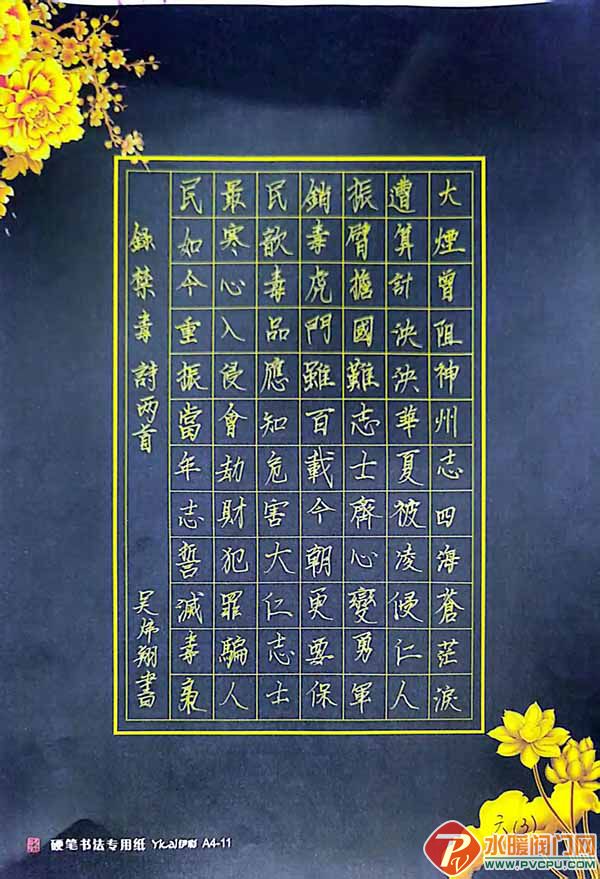 大煙曾阻神州志四海蒼茫淚
遭算計泱泱華夏被凌侵仁人
振臂擔國難志士齊心變勇軍
銷毒虎門雖百載今朝更要保
民歆毒品應知危害大仁志士
最寒心入侵會劫財犯罪騙人
民如今重振當年志誓滅毒
録禁毒詩两首
吴炜翔書
六(3)
硬笔书法专用纸 Yical伊彩 A4-11
水暖阀门网
WWW.PVCPU.COM